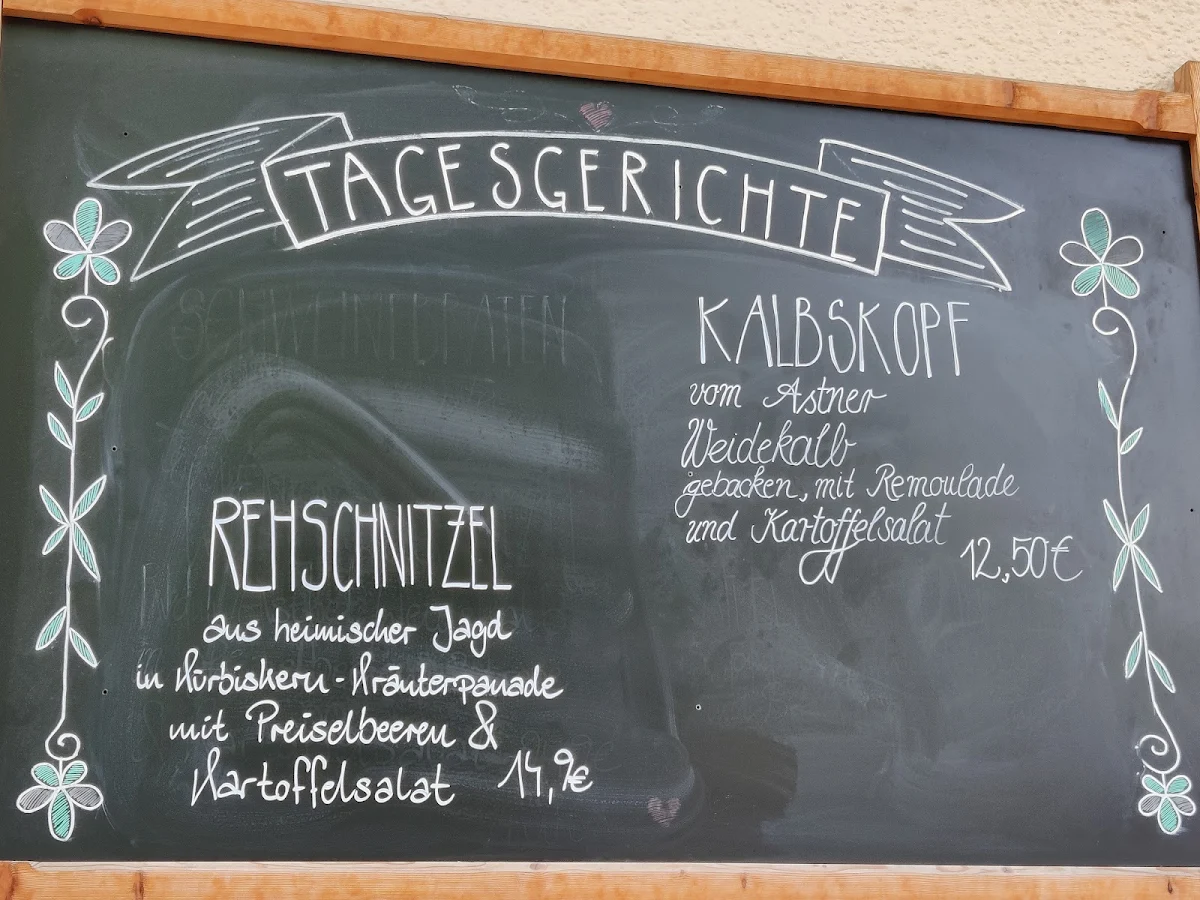 TAGESGERICHTE
REHSCHNITZEL
aus heimischer Jagd
in Kürbiskern-Kräuterpanade
mit Preiselbeeren &
Kartoffelsalat 14,9€
KALBSKOPF
vom Astner
Weidekalb
gebacken, mit Remoulade
und Kartoffelsalat
12,50€